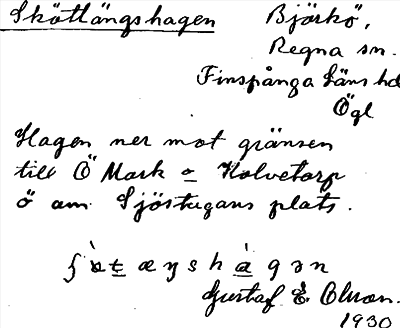 Sköttängshagen
Björkö,
Regna sn.
Finspånga läns hd
Ögl
Hagen ner mot gränsen
till Ö Mark o Holvetorp
ö om Sjöstugans plats.
Gustaf E. Olson.
1930